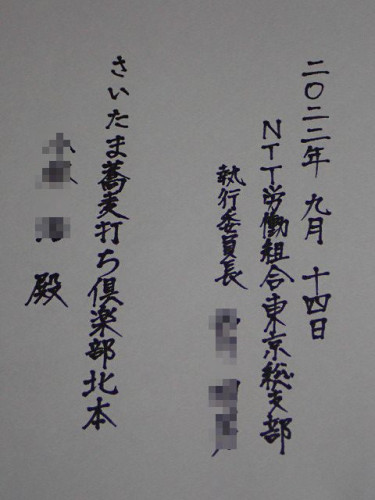 二〇二二年 九月 十四日
NTT労働組合東京総支部
執行委員長
さいたま蕎麦打ち倶楽部北本
殿